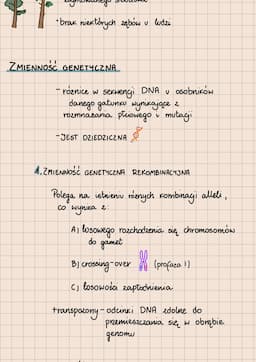 - brak niektórych zębów u ludzi
ZMIENNOŚĆ GENETYCZNA
- różnice w sekwencji DNA u osobników
danego gatunku wynikające z
rozmnażania płciowego i mutacji
- JEST DZIEDZICZNA
1. ZMIENNOŚĆ GENETYCZNA REKOMBINACYJNA
Polega na istnieniu różnych kombinacji alleli,
co wynika z:
A) losowego rozchodzenia się chromosomów
do gamet
B) crossing-over (profaza I)
C) losowości zapłodnienia
transpozony - odcinki DNA zdolne do
przemieszczania się w obrębie
genomu